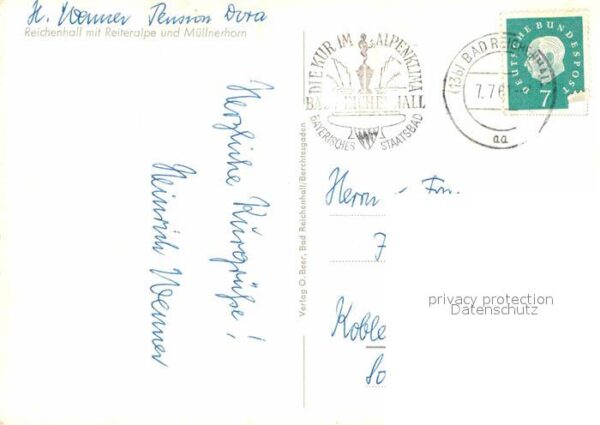 H. Wenner Pension Dora
Reichenhall mit Reiteralpe und Müllnerhorn
Herzliche Kurgrüße!
Heinrich Wenner
Verlag O. Beer, Bad Reichenhall/Berchtesgaden
DIE KUR IM ALPENKLIMA
BAD REICHENHALL
BAYERISCHES STAATSBAD
(13b) BAD REICHENHALL
7.7.6
aa
DEUTSCHE BUNDESPOST
7
Herrn - Frn.
J
Koble
So
privacy protection
Datenschutz